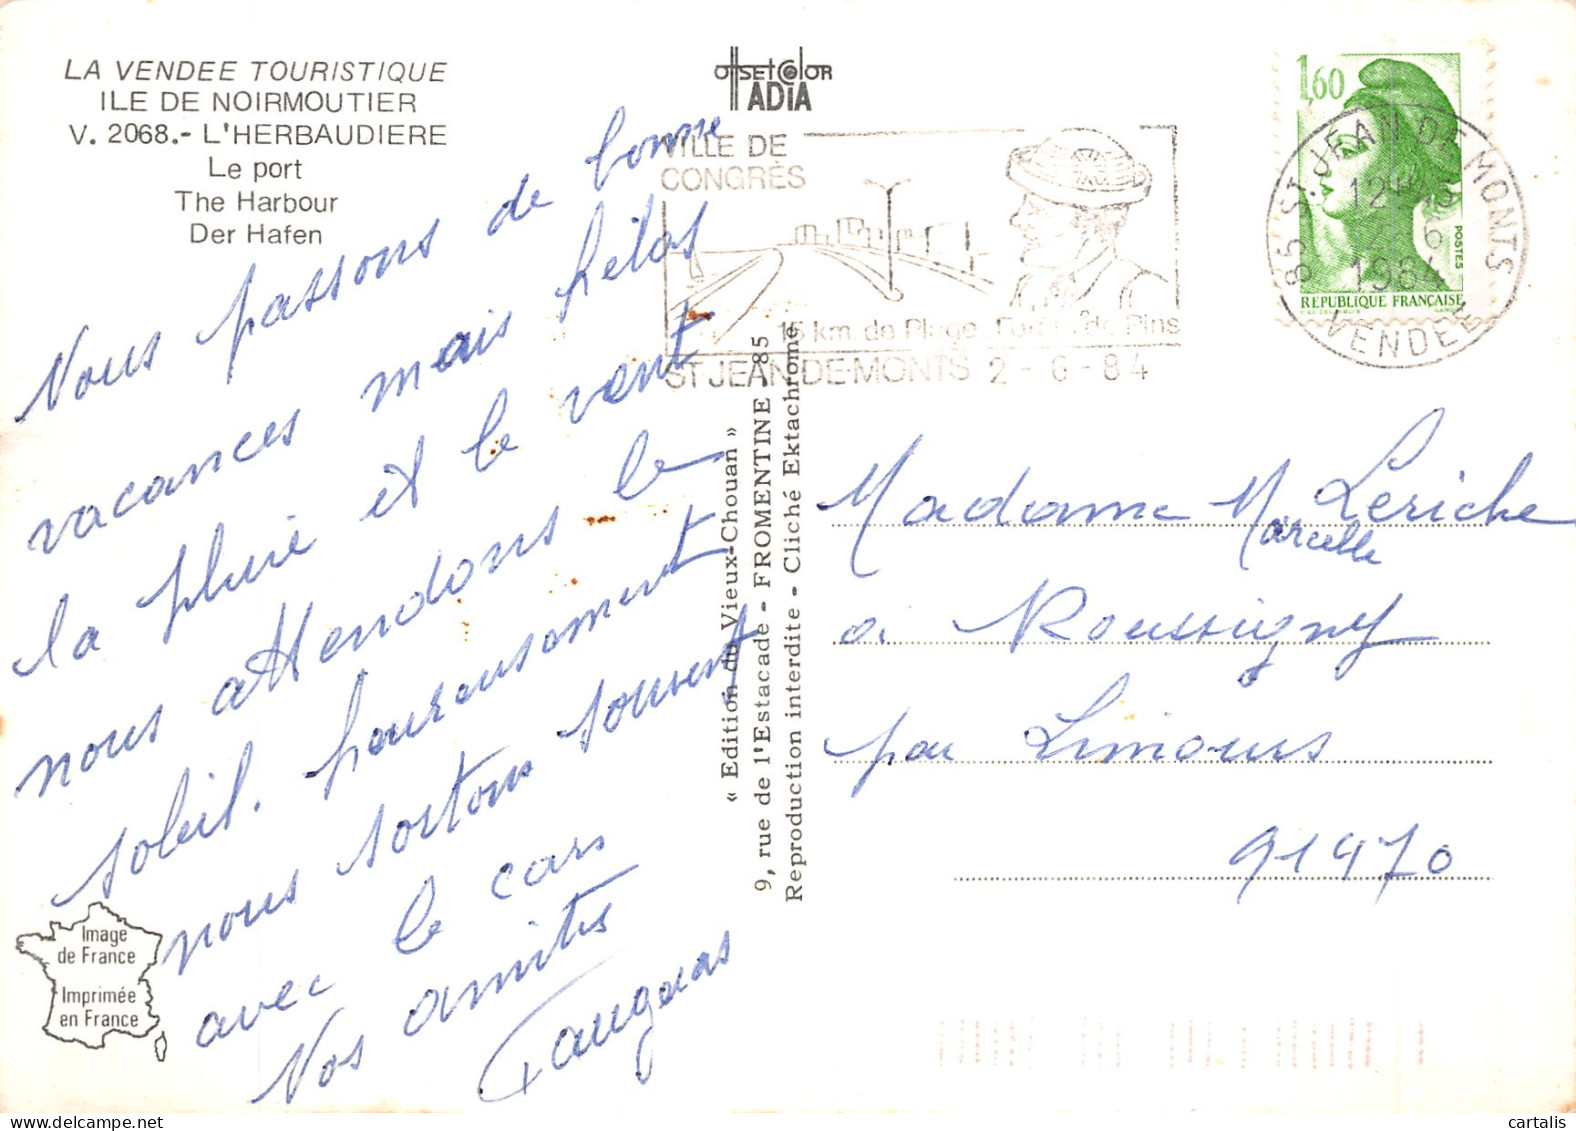 LA VENDEE TOURISTIQUE
ILE DE NOIRMOUTIER
V. 2068.- L'HERBAUDIERE
Le port
The Harbour
Der Hafen
Nous passons de bonne
vacances mais hélas
la pluie et le vent
nous attendons le
soleil. heureusement
nous sortons souvent
avec le cars
Nos amités
Image
de France
Imprimée
en France
OffSEt COlOR
ADIA
VILLE DE
CONGRÈS
15 km de Plage Forêt de Pins
ST-JEAN-DE-MONTS 2 - 6 - 84
« Edition du Vieux-Chouan »
9, rue de l'Estacade - FROMENTINE - 85
Reproduction interdite - Cliché Ektachrome
1,60
POSTES
REPUBLIQUE FRANÇAISE
85 ST. JEAN DE MONTS
12H
2-6
1984
VENDEE
Madame M Leriche
Marcelle
a Roussigny
par Limours
91470
cartalis